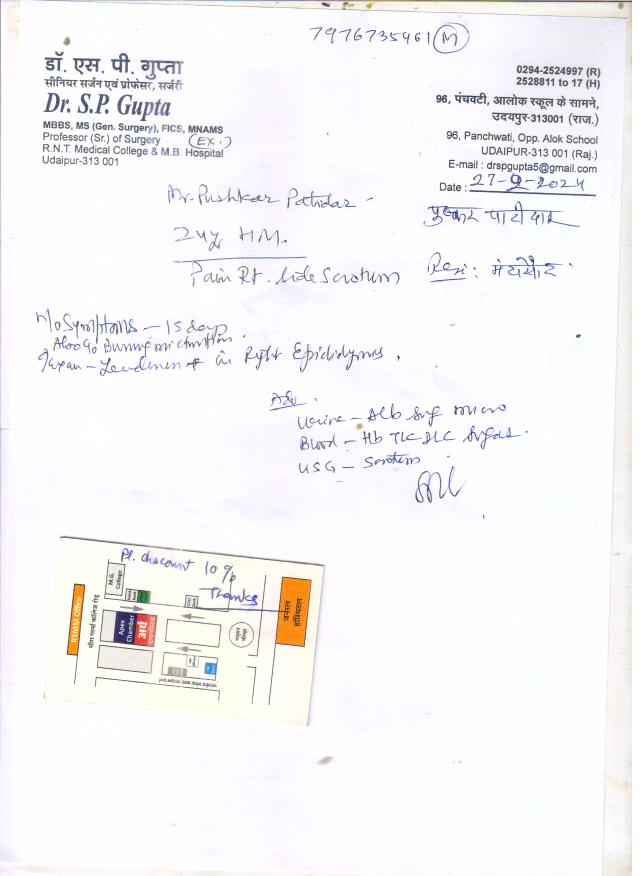 7976735461 (M)
डॉ. एस. पी. गुप्ता
सीनियर सर्जन एवं प्रोफेसर, सर्जरी
Dr. S.P. Gupta
MBBS, MS (Gen. Surgery), FICS, MNAMS
Professor (Sr.) of Surgery (EX.)
R.N.T. Medical College & M.B. Hospital
Udaipur-313 001
0294-2524997 (R)
2528811 to 17 (H)
96, पंचवटी, आलोक स्कूल के सामने,
उदयपुर-313001 (राज.)
96, Panchwati, Opp. Alok School
UDAIPUR-313 001 (Raj.)
E-mail : drspgupta5@gmail.com
Date : 27-9-2024
Mr. Pushkar Patidar
पुष्कर पाटीदार
24y HM.
Pain Rt. Side Scrotum
Resi : मंदसौर
H/o Symptoms - 15 days
Also G/o Burning micturition.
in Right Epididymis.
Adv.
Urine - Alb Sug micro
Blood - Hb TLC DLC Sugar.
USG - Scrotum
Pl. discount 10%
Thanks
M.G. College
RSMM Office
मीरा गर्ल्स कॉलेज रोड़
Apex Chamber
अर्थ
जनरल हॉस्पिटल